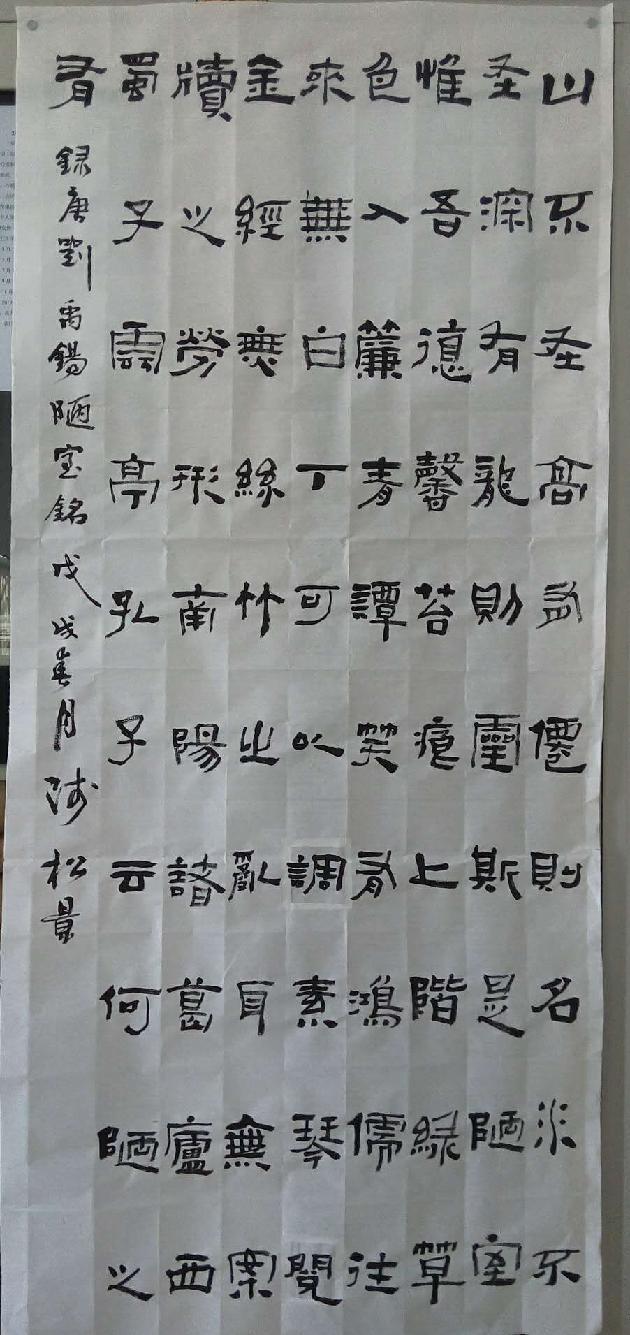 山不在高有僊則名水不
在深有龍則靈斯是陋室
惟吾德馨苔痕上階綠草
色入簾青譚笑有鴻儒往
來無白丁可以調素琴閱
金經無絲竹之亂耳無案
牘之勞形南陽諸葛廬西
蜀子雲亭孔子云何陋之
有 録唐劉禹錫陋室銘 戊戌春月 陳松景